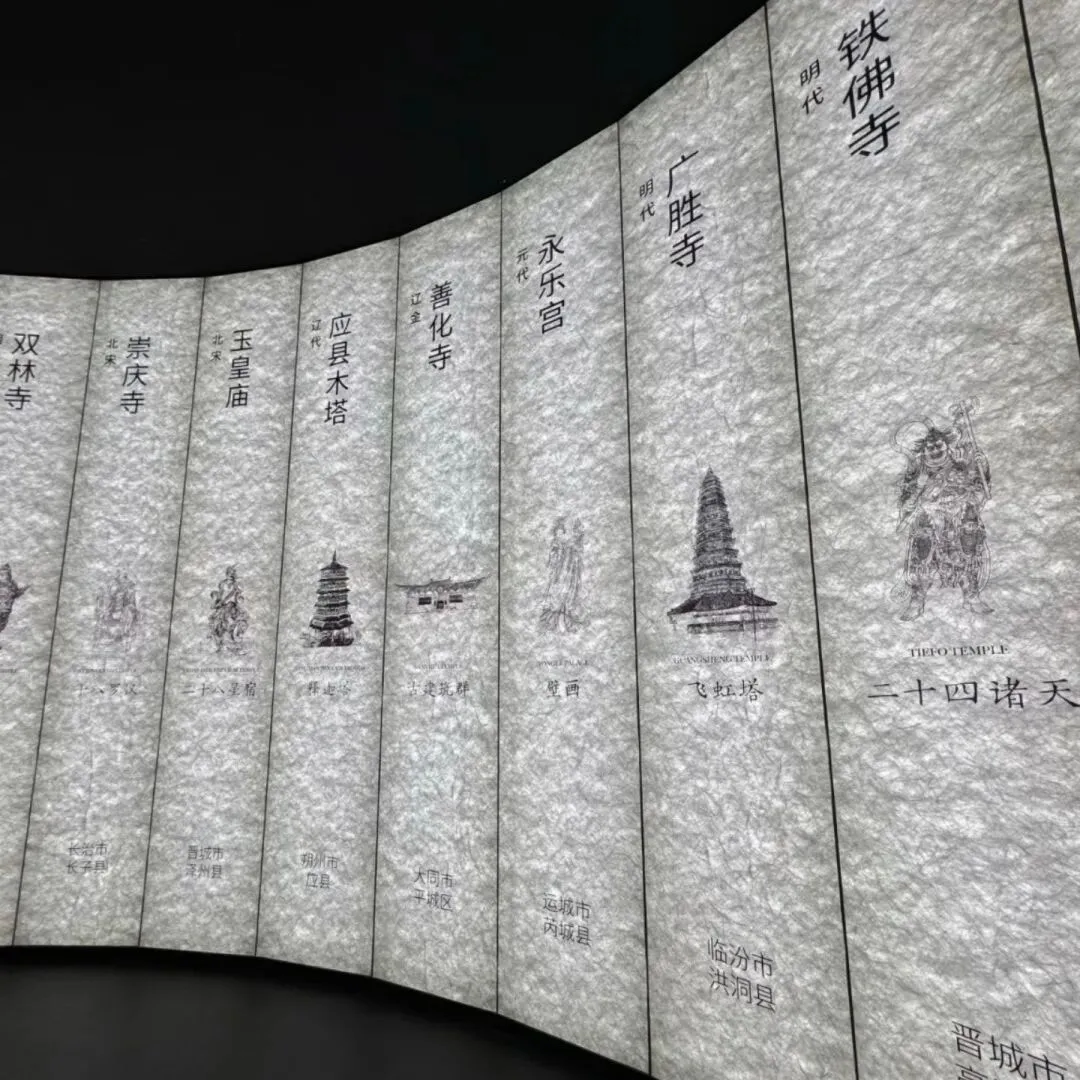 双林寺
崇庆寺
北宋
十八罗汉
长治市
长子县
玉皇庙
北宋
二十八星宿
晋城市
泽州县
应县木塔
辽代
释迦塔
朔州市
应县
善化寺
辽金
古建筑群
大同市
平城区
永乐宫
元代
YONGLE PALACE
壁画
运城市
芮城县
广胜寺
明代
GUANGSHENG TEMPLE
飞虹塔
临汾市
洪洞县
铁佛寺
明代
TIEFO TEMPLE
二十四诸天
晋城市